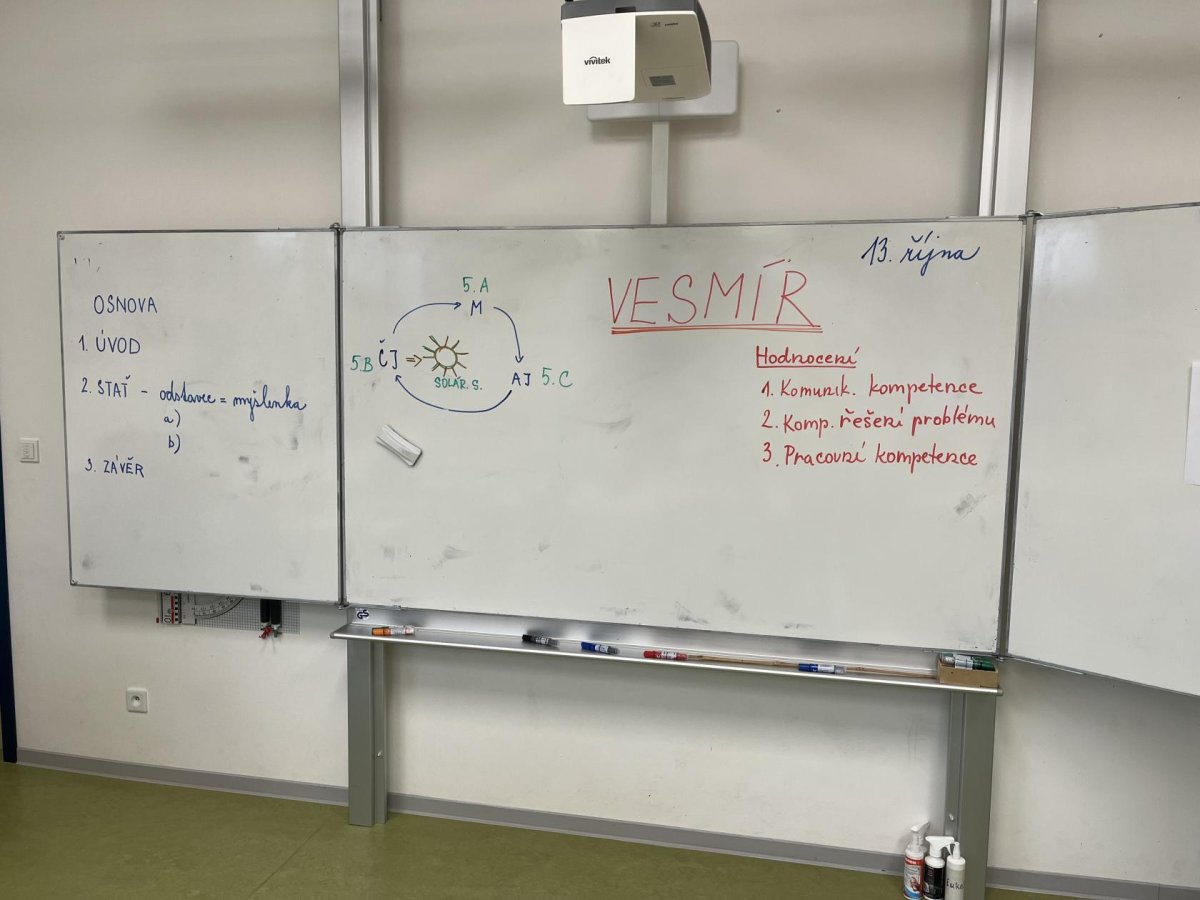 vivitek
OSNOVA
1. ÚVOD
2. STAŤ - odstavec = myšlenka
a)
b)
3. ZÁVĚR
5. A
M
5.B ČJ ⇒
SOLÁR. S.
AJ 5. C
VESMÍR
13. října
Hodnocení
1. Komunik. kompetence
2. Komp. řešení problému
3. Pracovní kompetence